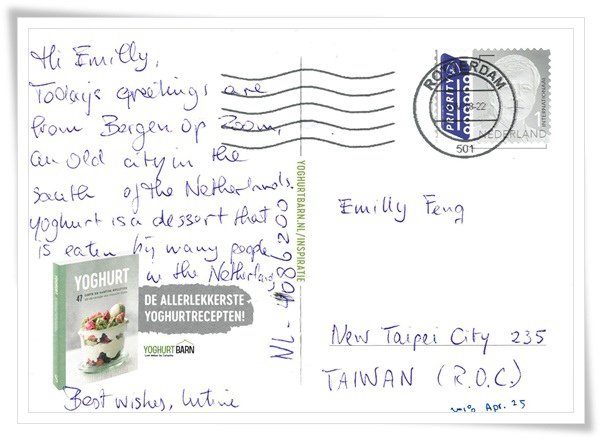 Hi Emilly,
Today's greetings are
from Bergen op Zoom,
an old city in the
south of the Netherlands.
Yoghurt is a dessert that
is eaten by many people
in the Netherlands
Best wishes,
YOGHURT
47
DE ALLERLEKKERSTE
YOGHURTRECEPTEN!
YOGHURTBARN
YOGHURTBARN.NL/INSPIRATIE
NL-4086200
PRIORITY
ROTTERDAM
501
INTERNATIONAAL
NEDERLAND
Emilly Feng
New Taipei City 235
TAIWAN (R.O.C.)
Apr. 25